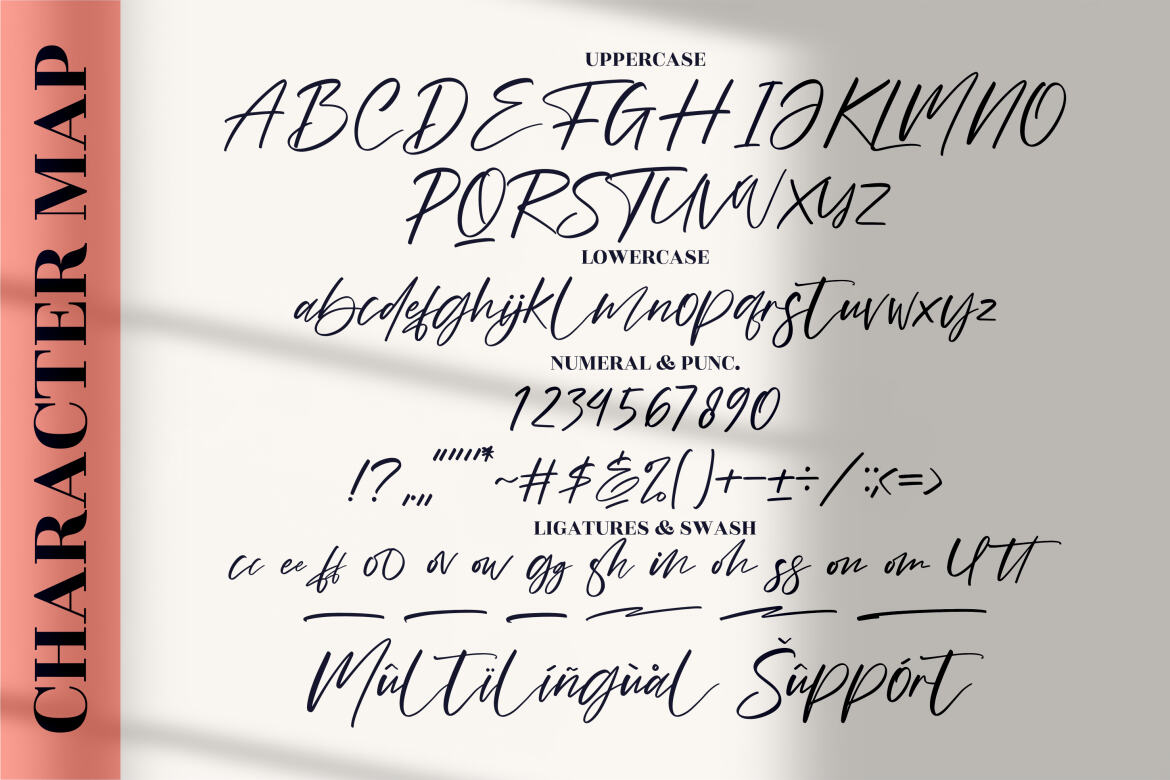 CHARACTER MAP
UPPERCASE
ABCDEFGHIJKLMNO
PQRSTUVWXYZ
LOWERCASE
abcdefghijklmnopqrstuvwxyz
NUMERAL & PUNC.
1234567890
!?.,„"""'*~#$&%()+−±÷/:;‹=›
LIGATURES & SWASH
cc ee ff oO ov ow gg gh in oh ss on om ll tt
Mûltïlíñgùål Šûppórt